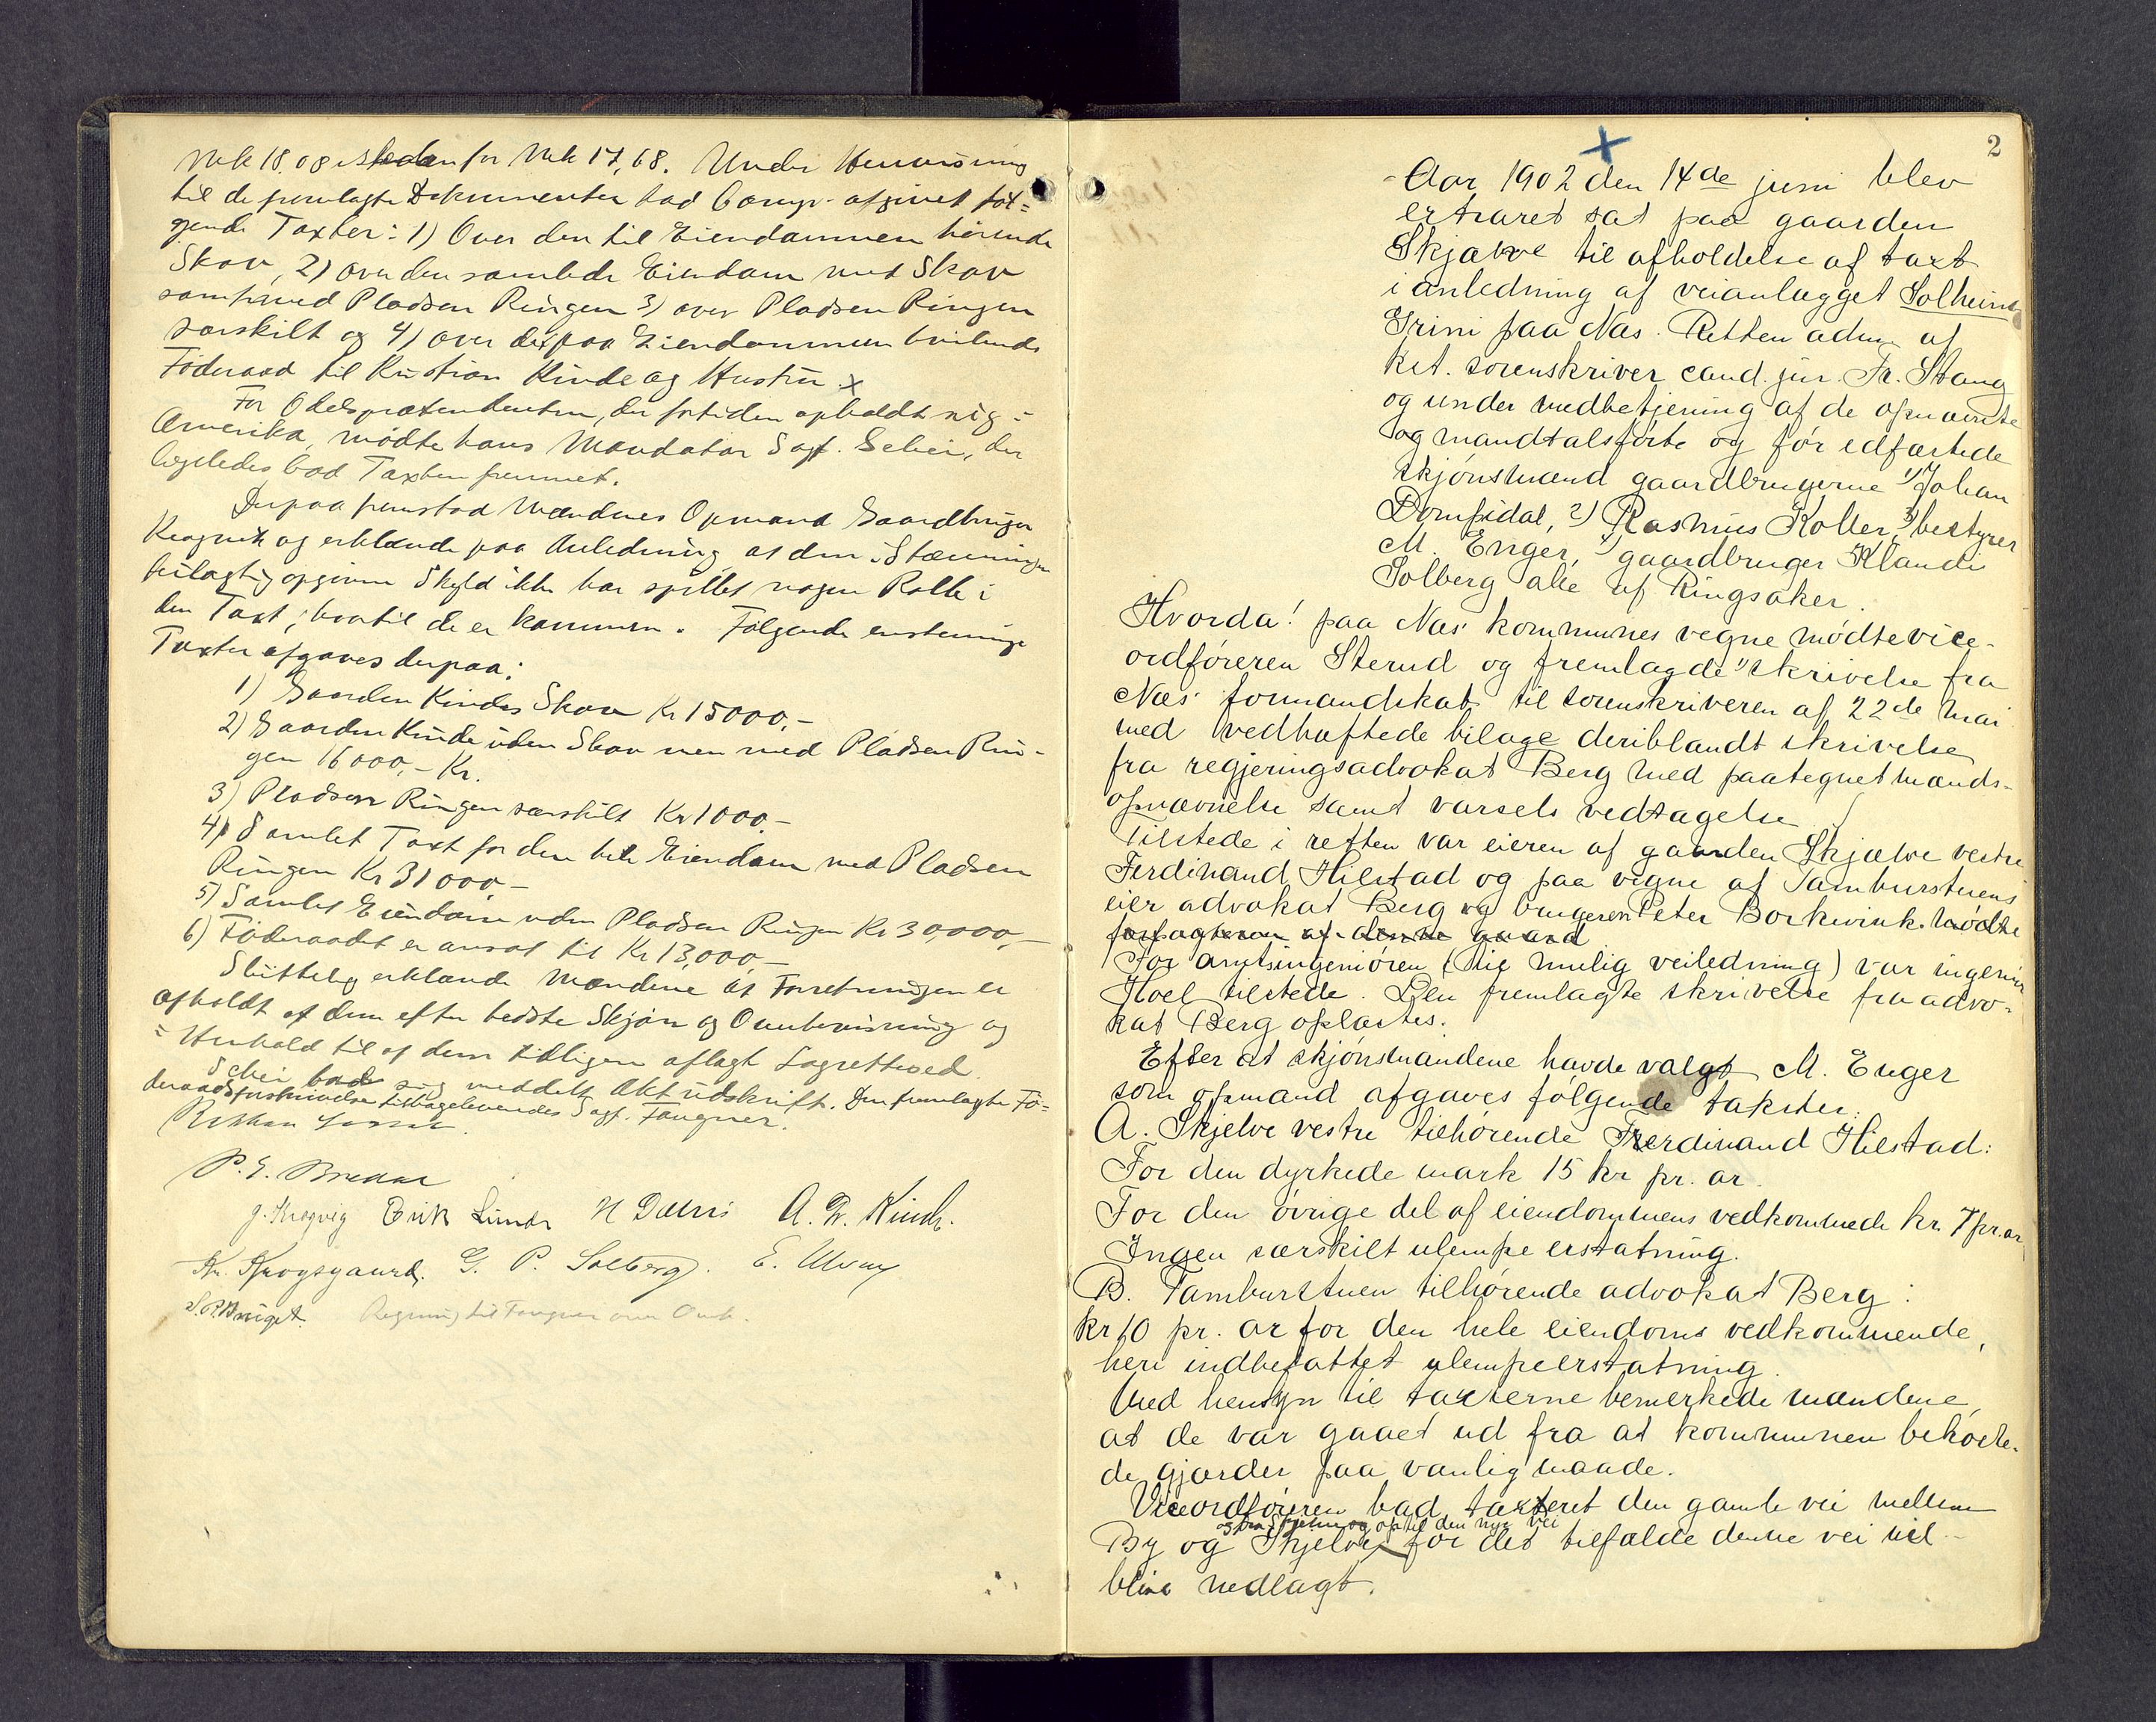 Mk 18.08 istedenfor Mk 17,68. Under Henvisning
til de fremlagte Dokumenter bad Comp. afgivet føl=
gende Taxter: 1) Over den til Eiendommen hørende
Skov, 2) over den samlede Eiendom med Skov
samt med Pladsen Ringen 3) over Pladsen Ringen
særskilt og 4) over det paa Eiendommen hvilende
Föderaad til Kristian Kinde og Hustru x
For Odelsprætendenten, der fortiden opholdt sig i
Amerika, mødte hans Mandatar Sagf. Schei, der
ligeledes bad Taxten fremmet.
Derpaa fremstod Mændenes Opmand Gaardbruger
Krogvik og erklærede paa Anledning at den i Stævningen
feilagtig opgivne Skyld ikke har spillet nogen Rolle i
den Taxt, hvortil de er kommen. Følgende enstemmige
Taxter afgaves derpaa:
1) Gaarden Kindes Skov Kr 15000,-
2) Gaarden Kinde uden Skov men med Pladsen Rin-
gen 16000,- Kr.
3) Pladsen Ringen særskilt Kr 1000.-
4) Samlet Taxt for den hele Eiendom med Pladsen
Ringen Kr 31000-
5) Samlet Eiendom uden Pladsen Ringen Kr 30,000,-
6) Föderaadet er ansat til Kr 13,000,-
Slutteligt erklærede Mændene at Forretningen er
afholdt af dem efter bedste Skjøn og Overbevisning og
i Henhold til af dem tidligere aflagt Lagretteed.
Schei bad sig meddelt Aktudskrift. Den fremlagte Fö=
deraadsforskrivelse tilbageleveredes Sagf. Fougner.
Retten hævet.
P. E.
J. Krogvig Erik Lunde H A. Kinde.
Kr. Krogsgaard. G. P. Solberg. E.
Regning til Fougner
2
x
Aar 1902 den 14de juni blev
extraret sat paa gaarden
Skjælve til afholdelse af taxt
i anledning af veianlægget Solheim-
Grini paa Næs. Retten adm. af
kst. sorenskriver cand. jur. Fr. Stang
og under medbetjening af de opnævnte
og mandtalsførte og før edfæstede
skjønsmænd gaardbrugerne 1) Johan
Domfidal, 2) Rasmus Koller, 3) bestyrer
M. Enger, 4) gaardbruger Klandi
Solberg alle af Ringsaker.
Hvorda! paa Næs kommunes vegne mødte vice-
ordføreren Sterud og fremlagde 1) skrivelse fra
Næs formandskab til sorenskriveren af 22de mai
med vedhæftede bilage deriblandt skrivelse
fra regjeringsadvokat Berg med paategnet mænds-
opnævnelse samt varsels vedtagelse
Tilstede i retten var eieren af gaarden Skjælve vestre
Ferdinand Hilstad og paa vegne af Tamburstuens
eier advokat Berg og brugeren Peter Borkvink. mødte
forpagteren af denne gaard
For amtsingeniøren (til mulig veiledning) var ingeniør
Hoel tilstede. Den fremlagte skrivelse fra advo-
kat Berg oplæstes.
Efter at skjønsmændene havde valgt M. Enger
som opmand afgaves følgende takster:
A. Skjelve vestre tilhørende Ferdinand Hilstad:
For den dyrkede mark 15 kr pr. ar.
For den øvrige del af eiendommens vedkommende kr. 7 pr. ar
Ingen særskilt ulempe erstatning.
B. Tamburstuen tilhørende advokat Berg:
kr 10 pr. ar for den hele eiendoms vedkommende,
heri indbefattet ulempeerstatning.
Med hensyn til taxterne bemerkede mændene,
at de var gaaet ud fra at kommunen bekoste-
de gjærder paa vanlig maade.
Viceordføreren bad taxteret den gamle vei mellem
og fra Skjelve og op til den nye vei
By og Skjelve for det tilfælde denne vei vil
blive nedlagt.